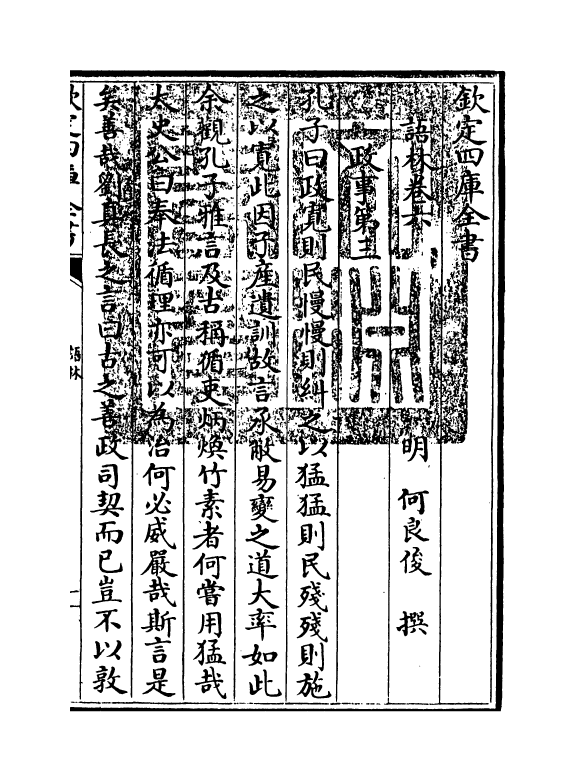 欽定四庫全書
語林卷六
明 何良俊 撰
政事第三
孔子曰政寛則民慢慢則糾之以猛猛則民殘殘則施
之以寛此因子產遺訓故言承敝易變之道大率如此
余觀孔子雅言及古稱循吏炳煥竹素者何嘗用猛哉
太史公曰奉法循理亦可以為治何必威嚴哉斯言是
矣善哉劉真長之言曰古之善政司契而已豈不以敦
欽定四庫全書
語林